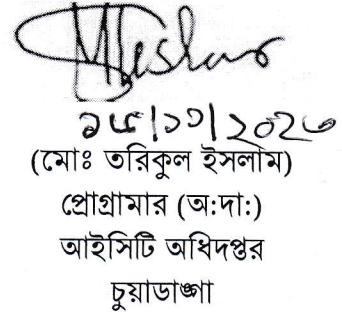 (মোঃ তরিকুল ইসলাম)
প্রোগ্রামার (অ:দা:)
আইসিটি অধিদপ্তর
চুয়াডাঙ্গা